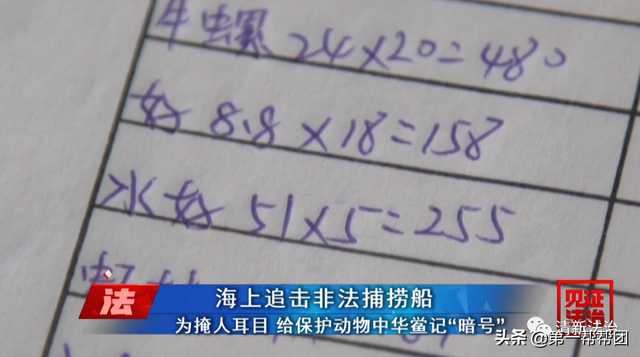 牛螺 24×20=480
蛤 8.8×18=158
水蛤 51×5=255
法
海上追击非法捕捞船
为掩人耳目 给保护动物中华鲎记“暗号”
见证
法治
清新法治
头条 @第一帮帮团